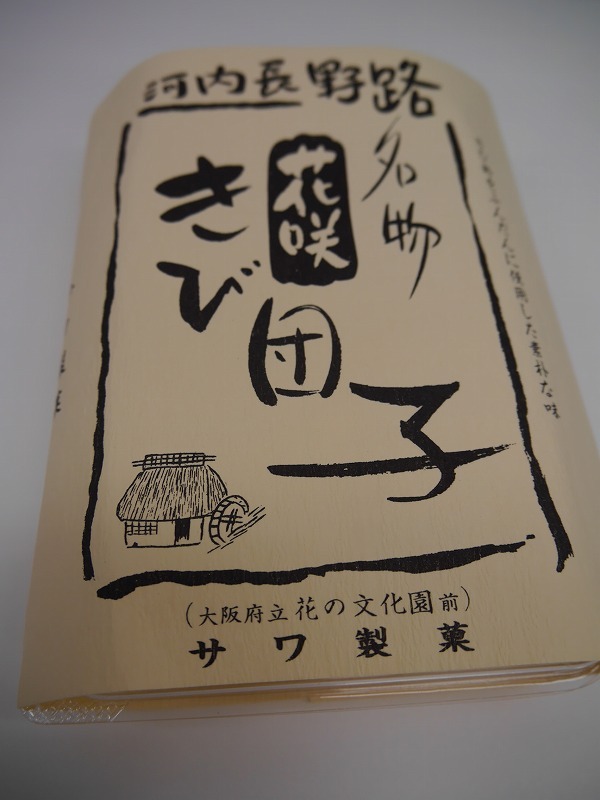 河内長野路
名物
花咲
きび
団子
をふんだんに使用した素朴な味
(大阪府立花の文化園前)
サワ製菓